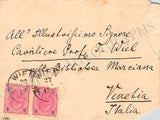 All' Illustrissimo Signore
Cavaliere Prof. T. Wiel
Biblioteca Marciana
Venetia
Italia
WIEN